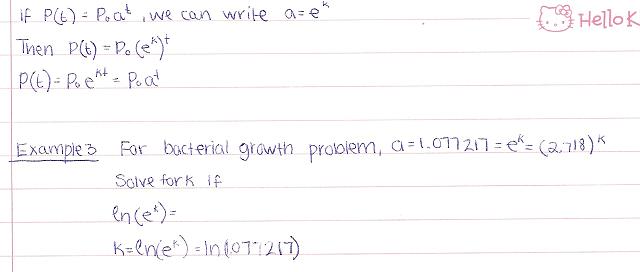 if P(t) = P₀aᵗ, we can write a = eᵏ
Hello K
Then P(t) = P₀(eᵏ)ᵗ
P(t) = P₀eᵏᵗ = P₀aᵗ
Example 3 For bacterial growth problem, a = 1.077217 = eᵏ = (2.718)ᵏ
Solve for k if
ln(eᵏ) =
k = ln(eᵏ) = ln(1.077217)